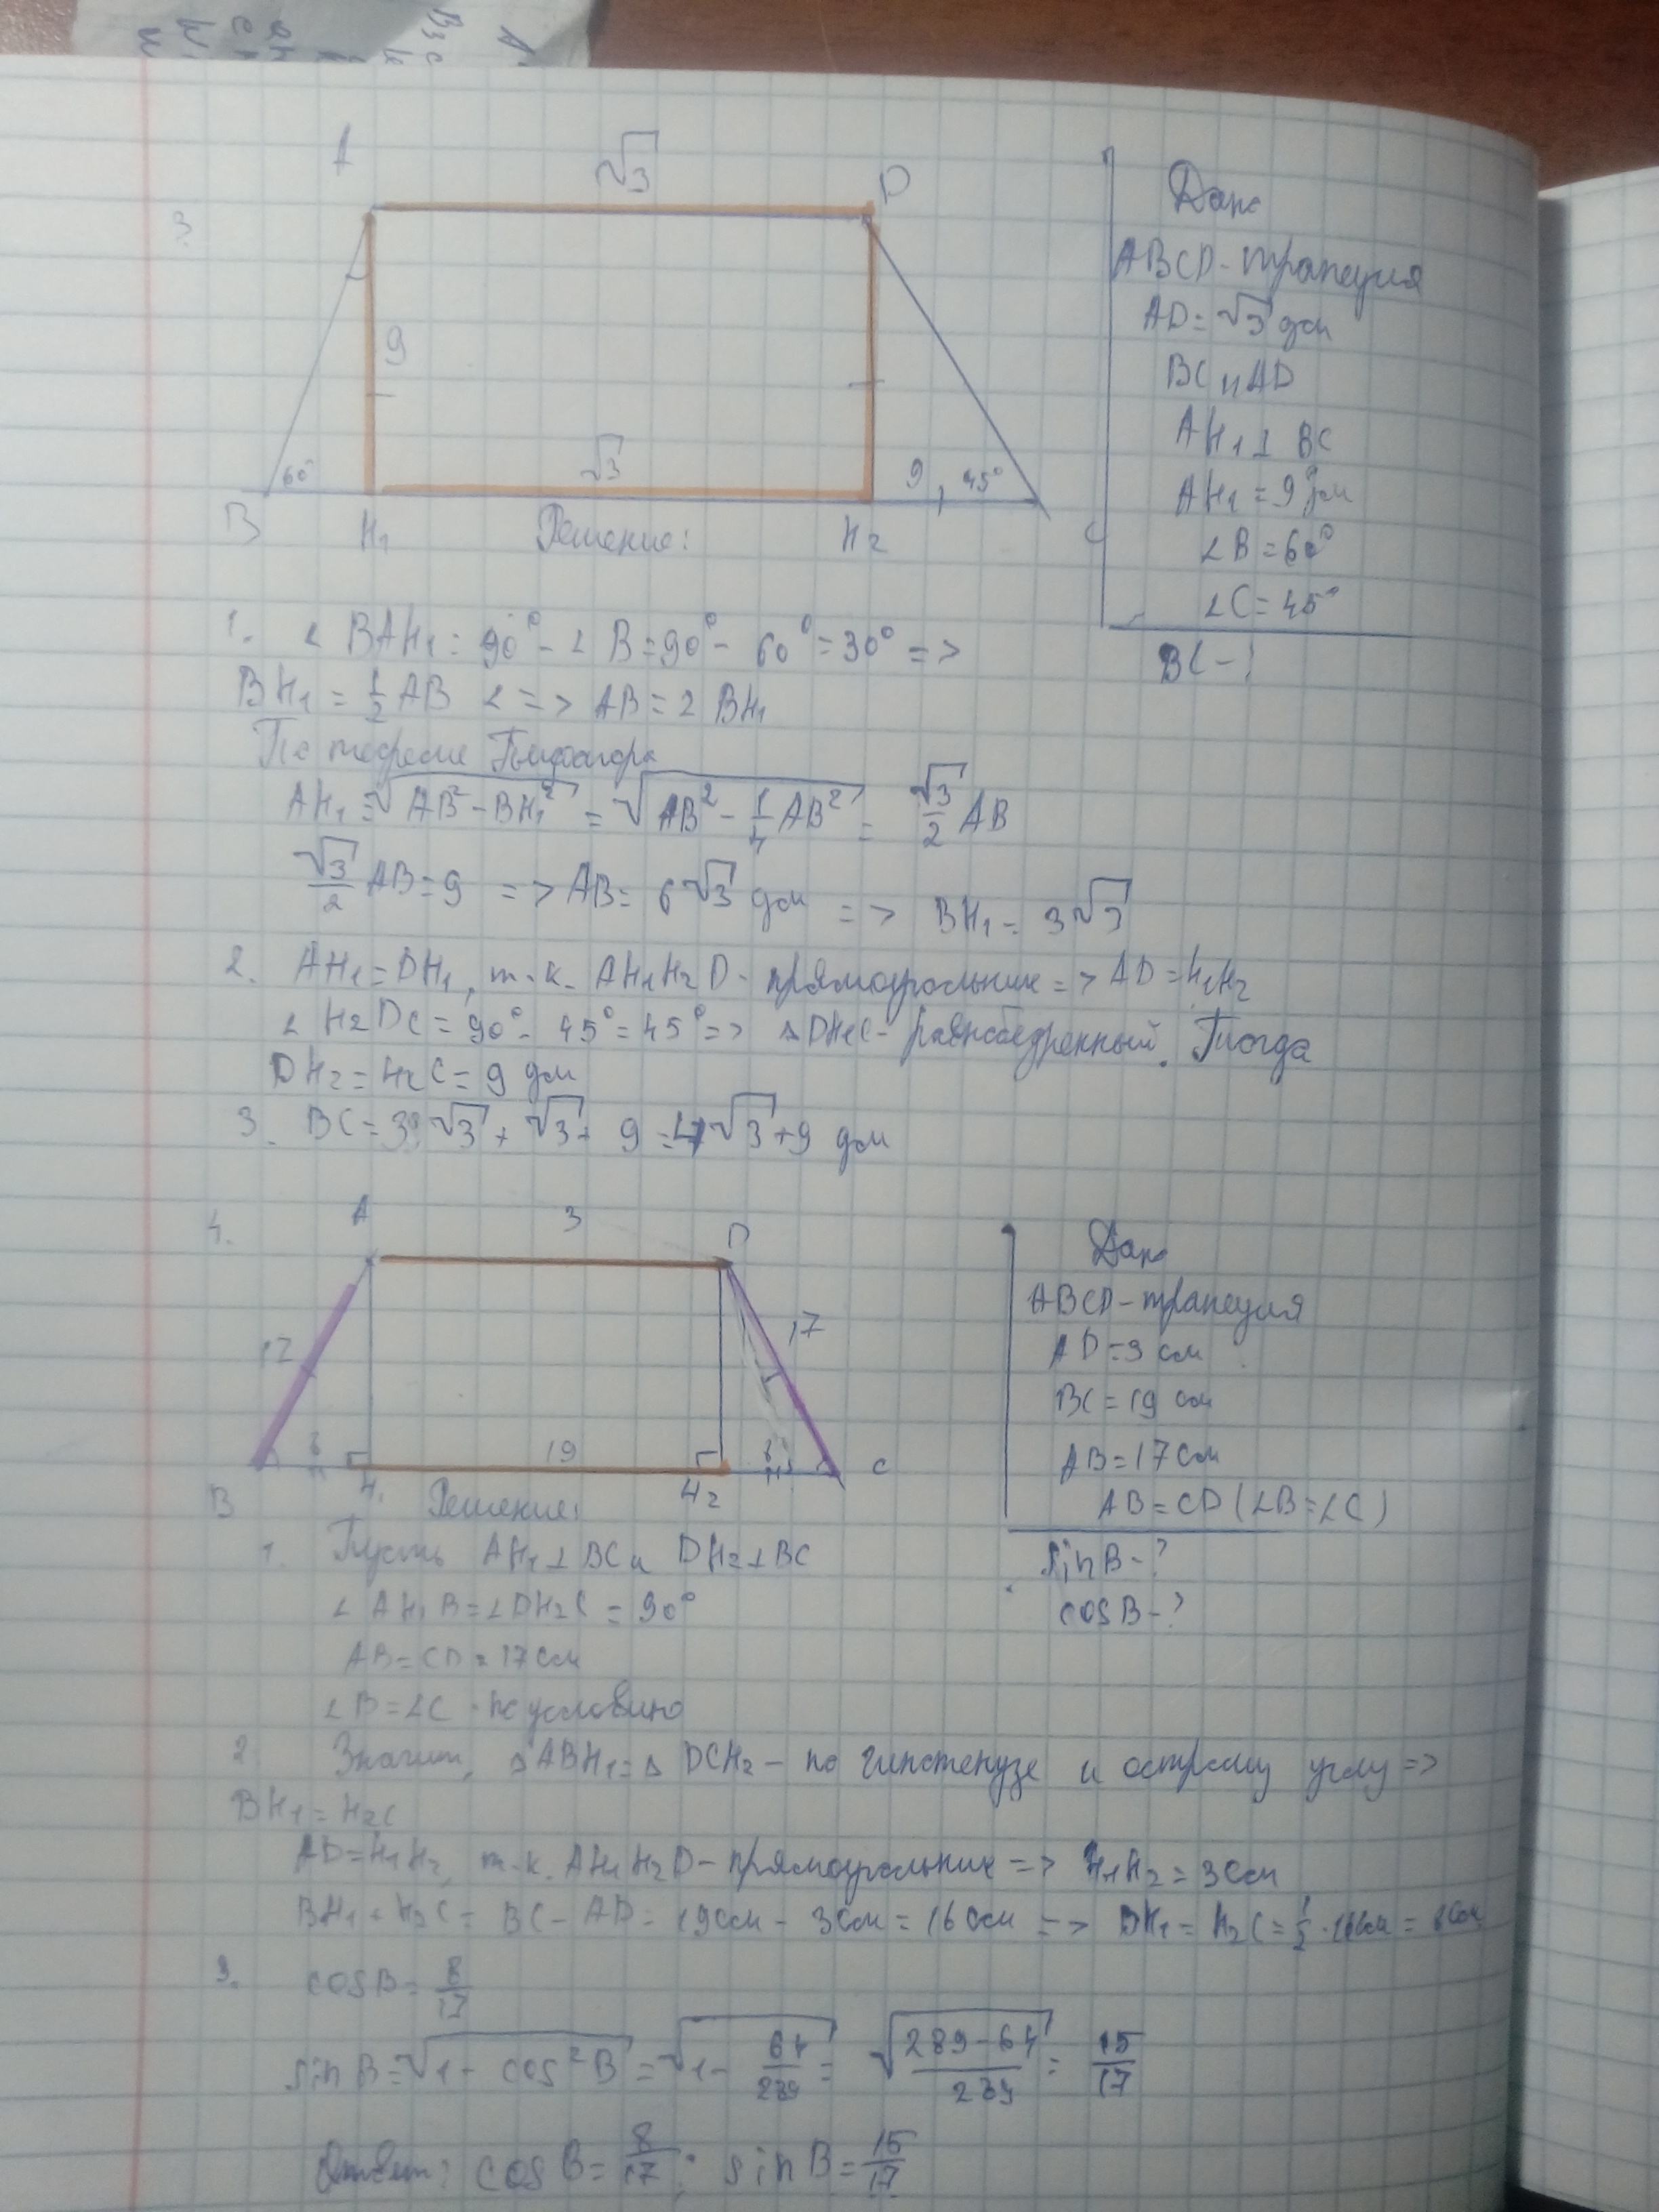 3.
A √3 D
9
60° √3 9 45°
B H₁ H₂ C
Дано
ABCD - трапеция
AD = √3 дм
BC и AD
AH₁ ⊥ BC
AH₁ = 9 дм
∠B = 60°
∠C = 45°
BC - ?
Решение:
1. ∠BAH₁ = 90° - ∠B = 90° - 60° = 30° =>
BH₁ = 1/2 AB <=> AB = 2 BH₁
По теореме Пифагора
AH₁ = √(AB² - BH₁²) = √(AB² - 1/4 AB²) = √3/2 AB
√3/2 AB = 9 => AB = 6√3 дм => BH₁ = 3√3
2. AH₁ = DH₁, т.к. AH₁H₂D - прямоугольник => AD = H₁H₂
∠H₂DC = 90° - 45° = 45° => △DH₂C - равнобедренный. Тогда
DH₂ = H₂C = 9 дм
3. BC = 3√3 + √3 + 9 = 4√3 + 9 дм
4.
A 3 D
17 17
8 19 8
B H₁ H₂ C
Дано
ABCD - трапеция
AD = 3 см
BC = 19 см
AB = 17 см
AB = CD (∠B = ∠C)
sin B - ?
cos B - ?
Решение:
1. Пусть AH₁ ⊥ BC и DH₂ ⊥ BC
∠AH₁B = ∠DH₂C = 90°
AB = CD = 17 см
∠B = ∠C - по условию
2. Значит, △ABH₁ = △DCH₂ - по гипотенузе и острому углу =>
BH₁ = H₂C
AD = H₁H₂, т.к. AH₁H₂D - прямоугольник => H₁H₂ = 3 см
BH₁ + H₂C = BC - AD = 19 см - 3 см = 16 см => BH₁ = H₂C = 1/2 · 16 см = 8 см
3. cos B = 8/17
sin B = √(1 - cos² B) = √(1 - 64/289) = √((289 - 64)/289) = 15/17
Ответ: cos B = 8/17; sin B = 15/17